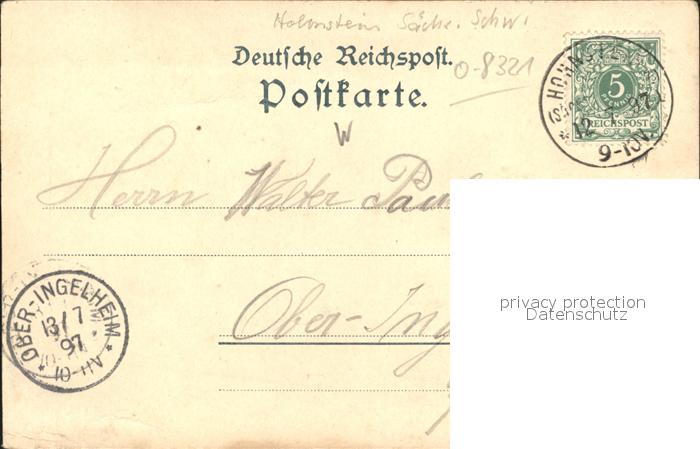 Hohnstein Sächs. Schw.
Deutsche Reichspost.
Postkarte.
0-8321
W
5
REICHSPOST
HOHNSTEIN
12 7 97
9-10V.
Herrn Walter
Ober-Ing
OBER-INGELHEIM
13/7
97
10-11V.
privacy protection
Datenschutz